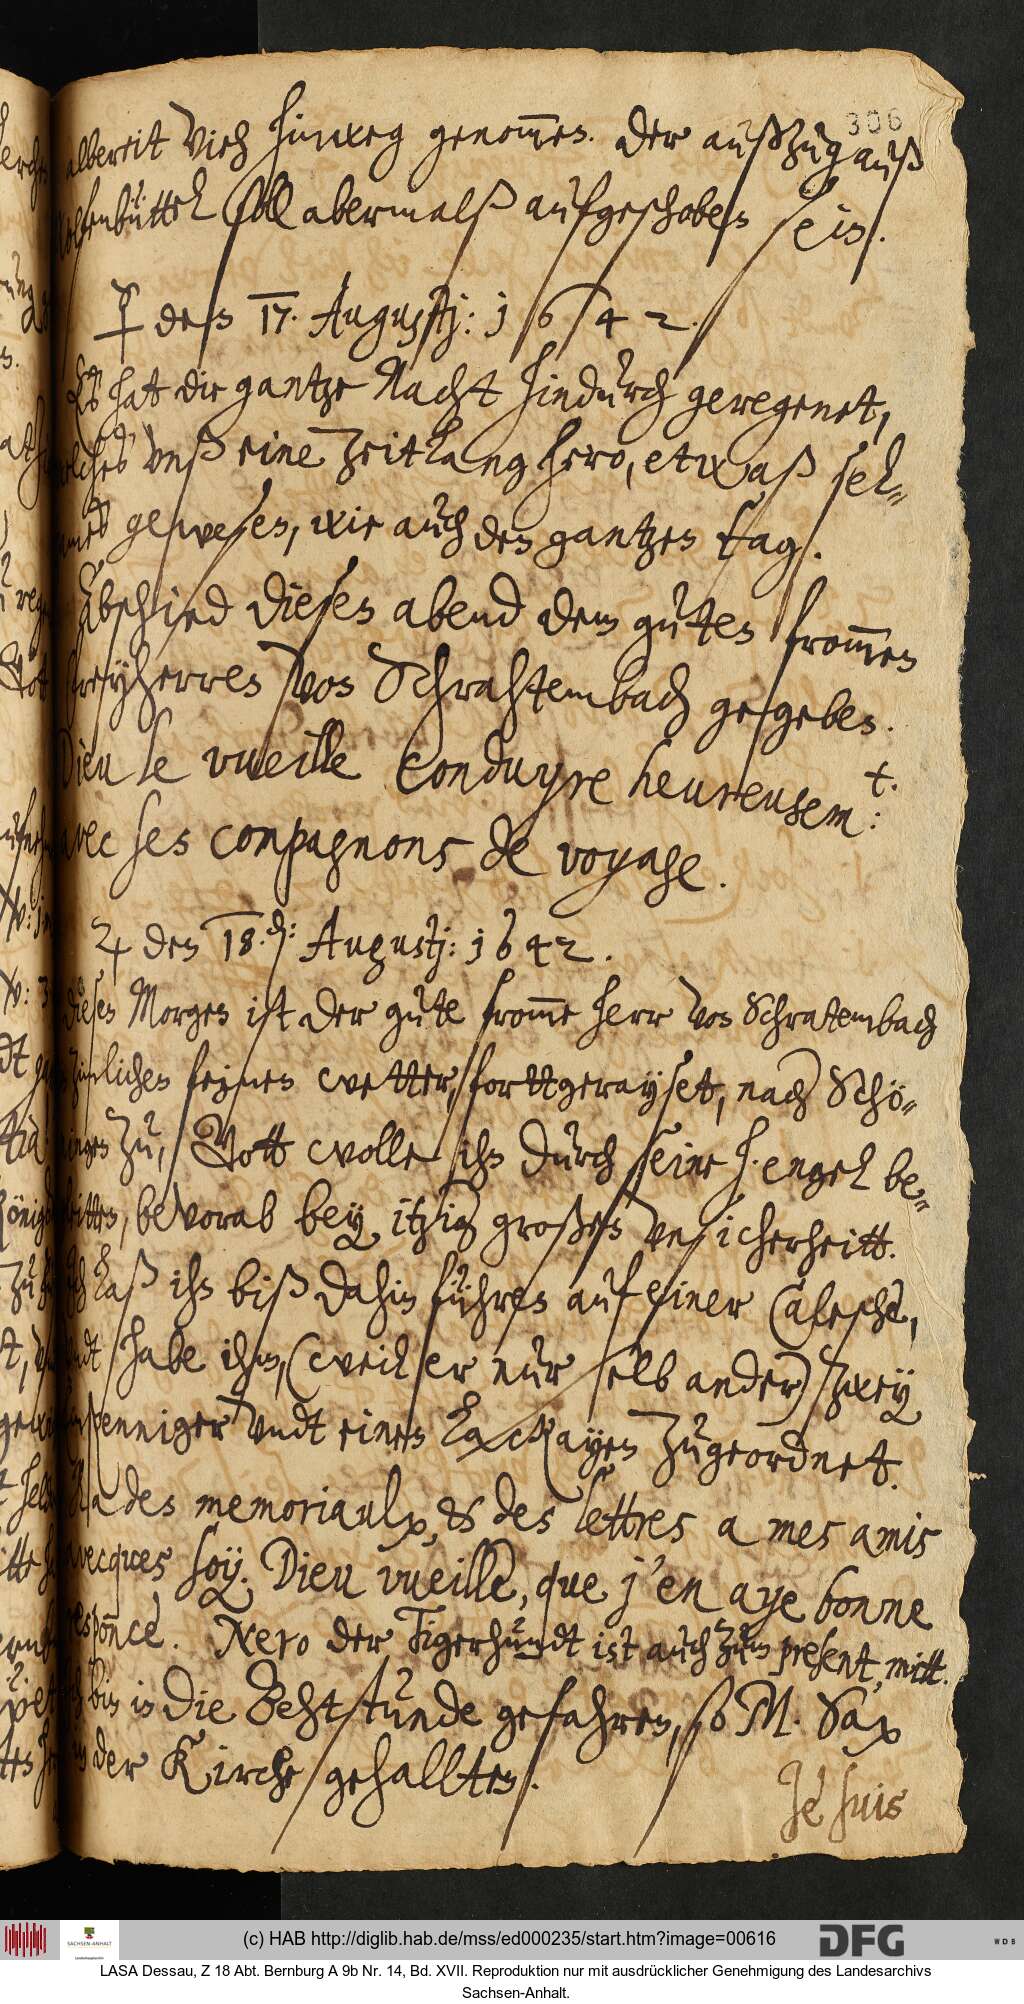 306
albereit Vieh hinweg genom̅en. Der außzug auß
Wolfenbüttel soll abermalß aufgeschoben sein.
☿ den 17. Augustj: 1642.
Es hat die gantze Nacht hindurch geregenet,
welches vnß eine zeitlang hero, etwaß sel-
tzames gewesen, wie auch den gantzen tag.
Abschied diesen abend dem guten from̅en
Freyherren von Schrahtembach gegeben.
Dieu le vueille conduyre heureusem:t.
avec ses compagnons de voyage.
♃ den 18.d: Augustj: 1642.
Diesen Morgen ist der gute from̅e herr von Schratembach
zimlichen feinen wetter, forttgerayset, nach Schö-
ningen zu, Gott wolle ihn durch seine h. engel be-
leitten, bevorab bey itzig großen vnsicherheitt.
Ich laß ihn biß dahin führen auf einer Calesche,
vndt habe ihm, (weil er nur selb ander) zwey
einspenniger vndt einen Lackayen zugeordnet.
Il a des memoriaulx, & des lettres a mes amis
avecques soy. Dieu vueille, que j'en aye bonne
responce. Nero der Tigerhundt ist auch zum present, mitt.
Ich bin in die Behtstunde gefahren, so M. Sax
in der Kirche gehallten.
Je suis
(c) HAB http://diglib.hab.de/mss/ed000235/start.htm?image=00616
SACHSEN-ANHALT
DFG
WDB
LASA Dessau, Z 18 Abt. Bernburg A 9b Nr. 14, Bd. XVII. Reproduktion nur mit ausdrücklicher Genehmigung des Landesarchivs
Sachsen-Anhalt.